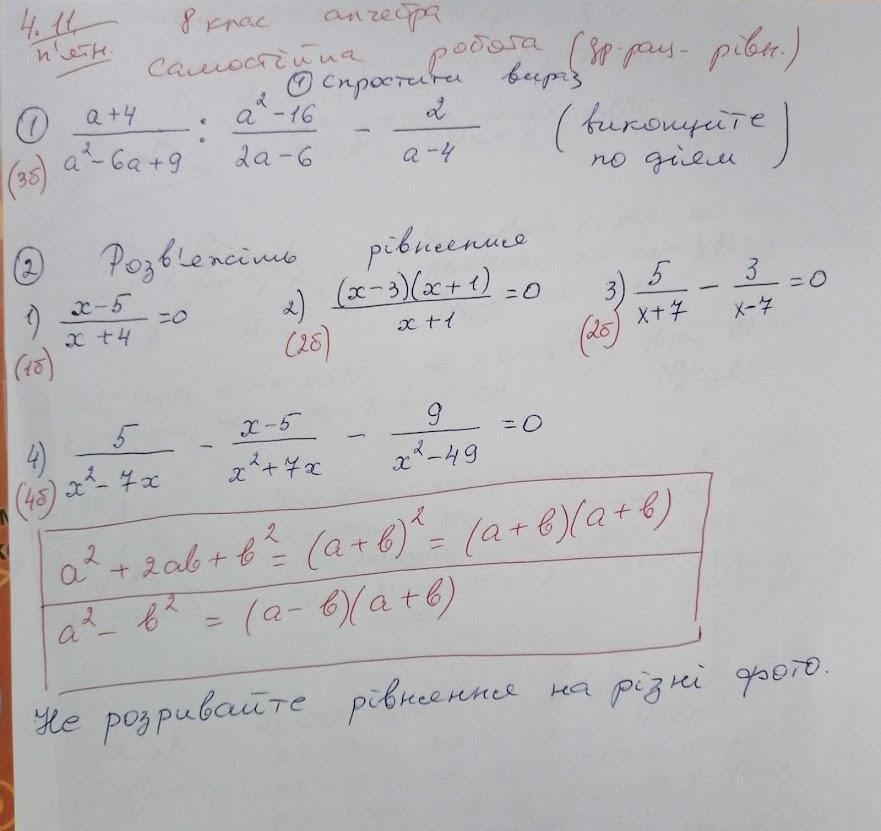 4.11 8 клас алгебра
п'ятн.
Самостійна робота (др-рац- рівн.)
① Спростити вираз
① (a+4)/(a²-6a+9) : (a²-16)/(2a-6) - 2/(a-4) (виконуйте
(3б) по діям)
② Розв'яжіть рівняння
1) (x-5)/(x+4) =0 2) ((x-3)(x+1))/(x+1) =0 3) 5/(x+7) - 3/(x-7) =0
(1б) (2б) (2б)
4) 5/(x²-7x) - (x-5)/(x²+7x) - 9/(x²-49) =0
(4б)
a²+2ab+b²=(a+b)²=(a+b)(a+b)
a²-b² =(a-b)(a+b)
Не розривайте рівняння на різні фото.